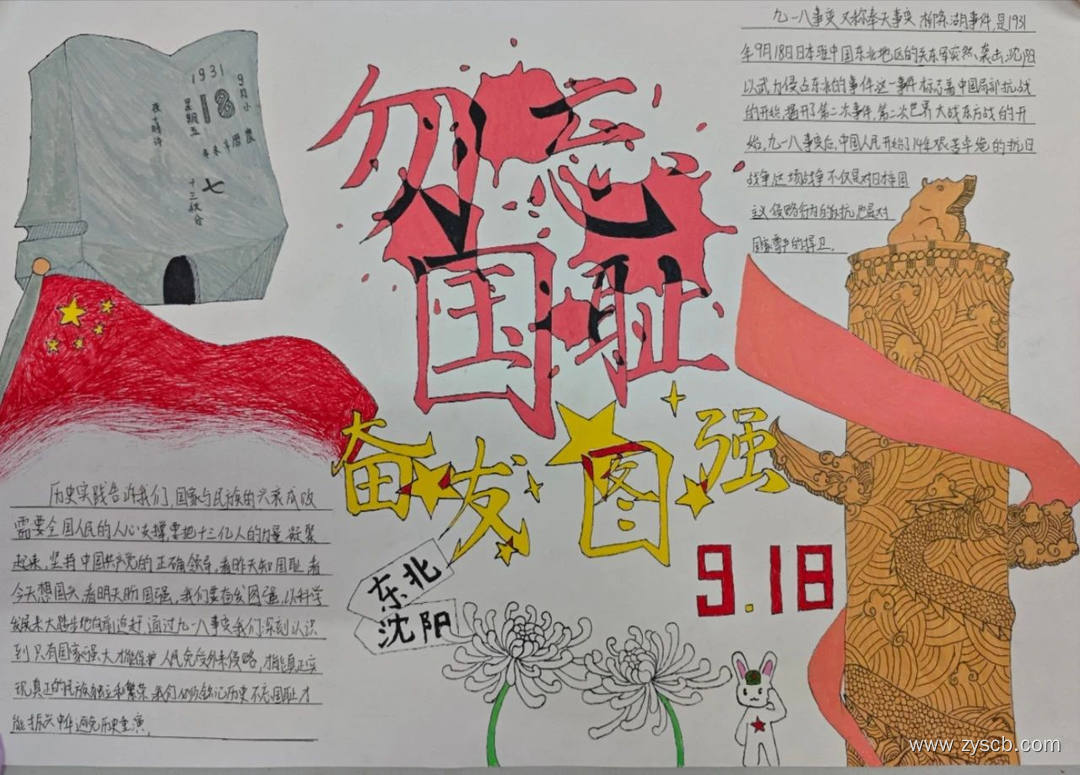 勿忘
国耻
奋发图强
9.18
东北
沈阳
1931
9月小
18
星期五
七
十三秋分
九一八事变又称奉天事变、柳条湖事件,是1931
年9月18日日本在中国东北地区的关东军突然袭击沈阳
以武力侵占东北的事件这一事件标志着中国局部抗战
的开始,揭开了第二次事件,第二次世界大战东方战的开
始,九一八事变后,中国人民开始了14年艰苦卓绝的抗日
战争这场战争不仅是对日本国
主义侵略行为的抵抗,也是对
国家尊严的捍卫.
历史实践告诉我们,国家与民族的兴衰成败
需要全国人民的人心支撑,要把十三亿人的力量凝聚
起来,坚持中国共产党的正确领导,看昨天知国耻,看
今天想国兴,看明天盼国强,我们要奋发图强,以科学
发展未大踏步地向前迈赶,通过九一八事变我们深刻认识
到只有国家强大才能保护人民免受外来侵略,才能真正实
现真正的民族独立和繁荣,我们必须铭记历史不忘国耻才
能振兴中华避免历史重演.
www.zyscb.com